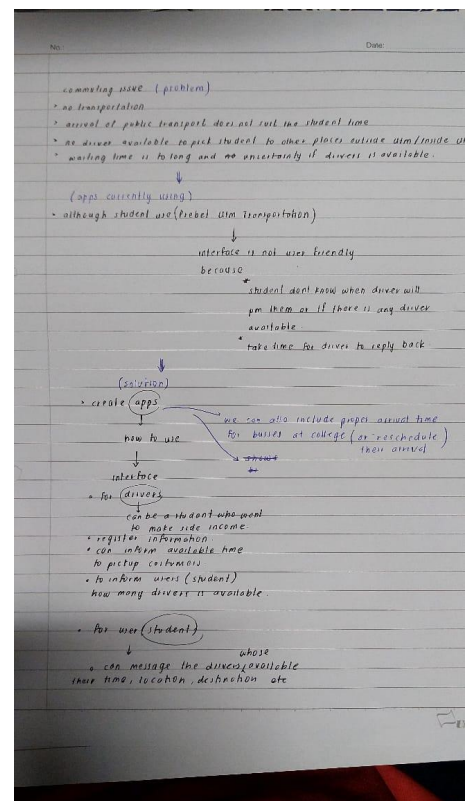 No:
Date:
commuting issue (problem)
* no transportation
* arrival of public transport does not suit the student time
* no driver available to pick student to other places outside utm/inside
* waiting time is to long and no uncertainty if drivers is available.
(apps currently using)
• although student use (Prebet Utm Transportation)
interface is not user friendly
because
* student dont know when driver will
pm them or if there is any driver
available.
* take time for driver to reply back
(solution)
• create apps
we can also include proper arrival time
for busses at college (or reschedule
their arrival
how to use
shows
interface
• for drivers
can be a student who want
to make side income.
• register information
• can inform available time
to pickup costumers
• to inform users (student)
how many drivers is available.
• For user (student)
whose
• can message the drivers available
their time, location, destination etc